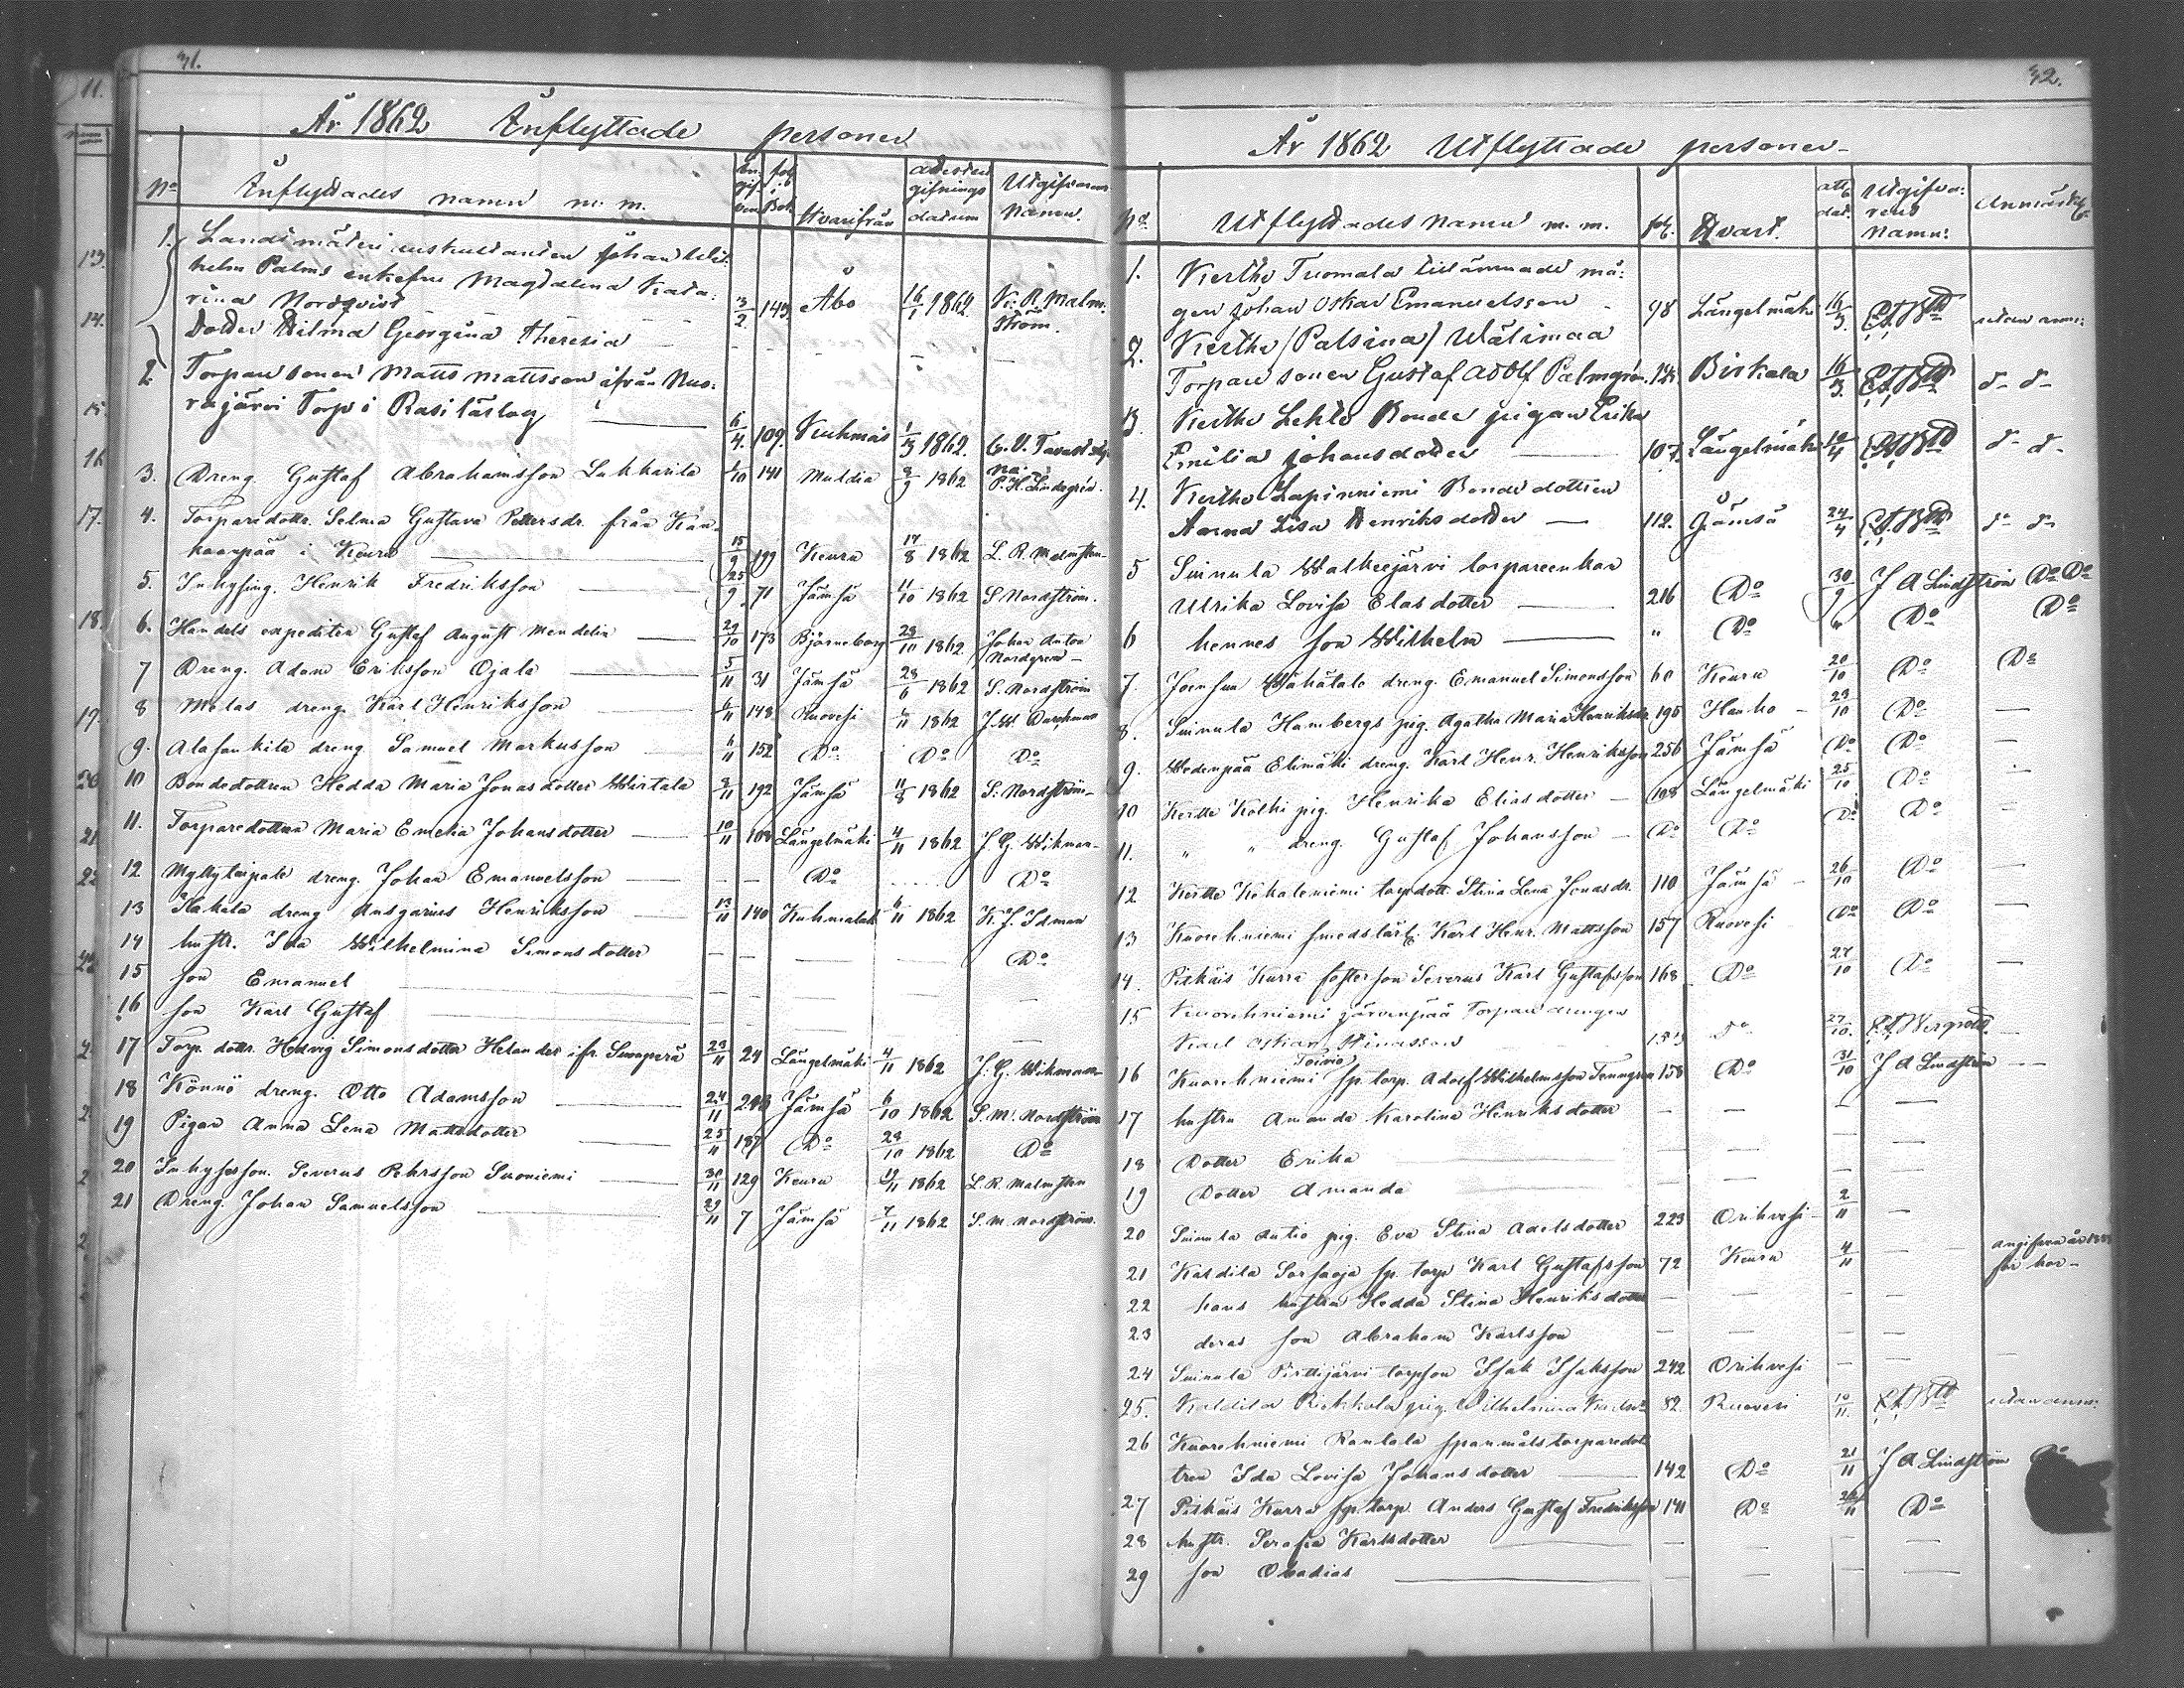 31.
År 1862 Inflyttade personer
No Inflyttades namn m. m. Hvarifrån datum Utgifvarens namn.
1. Landtmäteri auskultanten Johan Wil-
helm Palms enkefru Magdalena Kata-
rina Nordqvist 3/2 143 Åbo 16/1 1862 K. R. Malm-
ström.
Dotter Wilma Georgina Theresia
2. Torpare sonen Matts Mattsson ifrån
Torp i 6/4 109. Kuhmois 1/3 1862.
3. Dreng Gustaf Abrahamsson Lukkarila 1/10 141 Muldia 8/9 1862 P. H. Lindegrén.
4. Torparedottr. Selma Gustava Pettersdr. från Kan-
kaanpää i Keuru 15/9 199 Keuru 17/8 1862 L. R. Malmsten
5. Inhysing. Henrik Fredriksson 25/9 71 Jämsä 11/10 1862 S Nordström.
6. Handels expediten Gustaf August Mendelin 29/10 173 Björneborg 28/10 1862. Johan Anton
Nordgren
7 Dreng. Adam Eriksson Ojala 5/11 31 Jämsä 28/6 1862 S. Nordström
8 Melas dreng. Karl Henriksson 6/11 148 Ruovesi 6/11 1862
9. Alasenkila dreng Samuel Markusson 6/11 152 Do Do Do
10 Bondedottren Hedda Maria Jonasdotter Wirtala 8/11 192 Jämsä 11/8 1862 S. Nordström
11. Torparedottren Maria Emelia Johansdotter 10/11 108 Längelmäki 4/11 1862 J. G. Wikman
12 Myllytaipale dreng. Johan Emanuelsson Do Do
13 Hakala dreng Ansgarius Henriksson 13/11 140 Kuhmalaht 6/11 1862 K. J. Idman
14 hustr. Ida Wilhelmina Simonsdotter Do
15 son Emanuel
16 son Karl Gustaf
17 Torp. dottr. Hedvig Simonsdotter Helander ifr. 23/11 24 Längelmäki 4/11 1862 J. G. Wikman
18 Könnö dreng. Otto Adamsson 24/11 Jämsä 6/10 1862 S. M. Nordström
19 Pigan Anna Lena Mattsdotter 25/11 187 Do 28/10 1862 Do
20 Inhysesson. Severus Pehrsson Suoniemi 30/11 129 Keuru 1862 L. R. Malmsten
21 Dreng. Johan Samuelsson 29/11 7 Jämsä 7/11 1862 S. M. Nordström.
32.
År 1862 Utflyttade personer
No Utflyttades namn m. m. fol. Hvart. Utgifva-
rens
namn:
1. Kertte Tuomala må-
gen Johan Oskar Emanuelsson 98 Längelmäki 16/3
2. Kertte (Palsina) Wälimaa
Torpare sonen Gustaf Adolf Palmgrén. Birkala 16/3 d- d-
3. Kertte Lehto Bonde pigan Erika
Emilia Johansdotter 107. Längelmäki d- d-
4. Kertte Lapinniemi Bondedottren
Anna Lisa Henriksdotter 112. Jämsä 24/4 d- d-
5 Suinula Walkeejärvi torpareenkan
Ulrika Lovisa Elasdotter 216 Do 30/9 J A Lindström Do Do
6 hennes son Wilhelm " Do " Do Do
7. Joensuu dreng. Emanuel Simonsson 60 Keuru 20/10 Do Do
8. Suinula Hambergs pig. Agatha Maria Henriksdr. 195 Hauho 23/10 Do
9. Wedenpää Elimäki dreng. Karl Henr. Henriksson 256 Jämsä Do Do
10 Kertte Kolhi pig. Henrika Eliasdotter 108 Längelmäki 25/10 Do
11. " " dreng. Gustaf Johansson Do Do Do Do
12 Kertte Kokaleniemi torpdott. Stina Lena Jonasdr. 110 Jämsä 26/10 Do
13 Kuorehniemi smedslärl. Karl Henr. Mattsson 157 Ruovesi Do Do
14. Pitkäis Kurra fosterson Severus Karl Gustafsson 168 Do 27/10 Do
15 Kuorehniemi Järvenpää Torpare drengen
Karl Oskar do 27/10.
16 Kuorehniemi Toivio sp. torp. Adolf Wilhelmsson 158 Do 31/10 J A Lindström
17 hustru Amanda Karolina Henriksdotter
18 Dotter Erika
19 Dotter Amanda
20 Suinula Autio pig. Eva Stina Adelsdotter 223 Orihvesi 2/11
21 Kaldila Sorsaoja sp. torp Karl Gustafsson 72 Keuru 4/11
22 hans hustru Hedda Stina Henriksdotter
23 deras son Abraham Karlsson
24 Suinula Pirttijärvi torpson Isak Isaksson 242 Orihvesi
25. Kaldila pig. Wilhelmina 82. Ruovesi 10/11
26 Kuorehniemi Rantala spanmålstorparedot-
tren Ida Lovisa Johansdotter 142 Do 21/11 J A Lindström Do
27 Pitkäis Kurra sp. torp. Anders Gustaf Fredriksson 141 Do Do
28 hustr. Serafia Karlsdotter
29 son Obadias